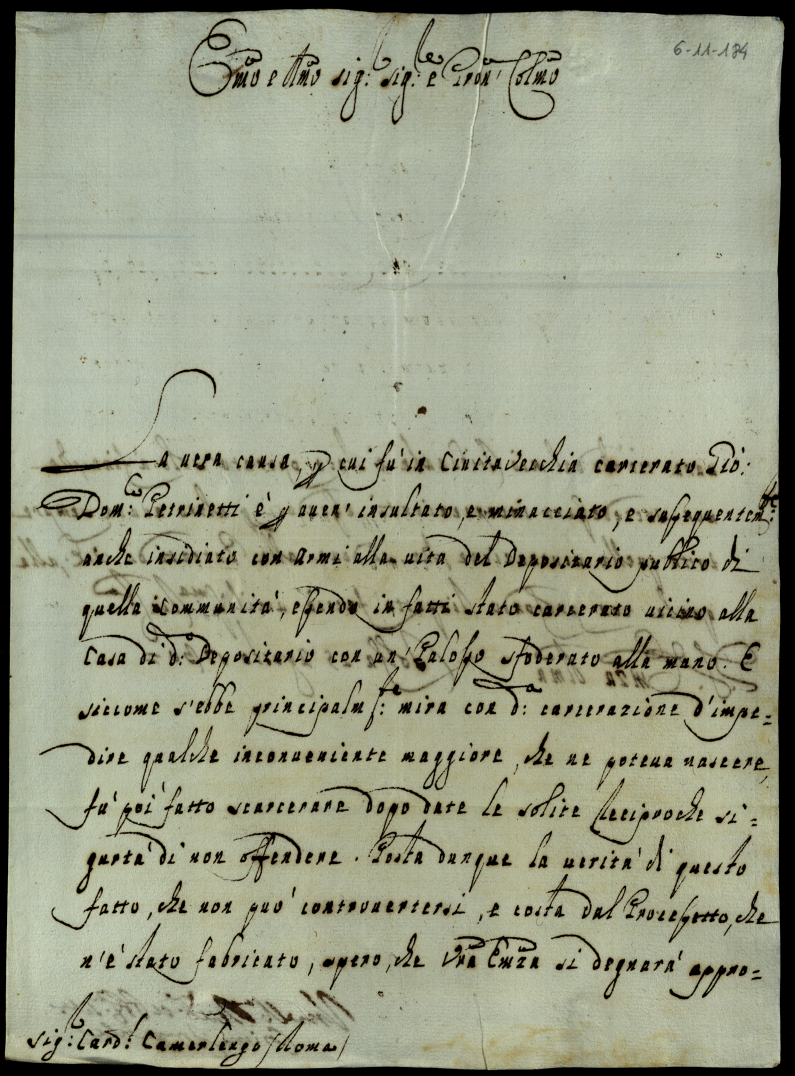 6-11-184
Emo e Rmo sig.r sig.re e Pron' Colmo
La vera causa, p cui fu' in Civitavecchia carcerato Gio:
Dom.co Petrinetti è p aver' insultato, e minacciato, e susseguentem.te
anche insidiato con armi alla vita del Depositario publico di
quella Communità, essendo in fatti stato carcerato vicino alla
Casa di d.o Depositario con un' Palosso sfoderato alla mano. E
siccome s'ebbe principalm.te mira con d.a carcerazione d'impe=
dire qualche inconveniente maggiore, che ne poteva nascere,
fu' poi' fatto scarcerare dopo date le solite reciproche si=
gurtà di non offendere. Posta dunque la verità di questo
fatto, che non può controvertersi, e costa dal Processetto, che
n'è stato fabricato, spero, che Vra Emza si degnarà appro=
sig.r Card.l Camerlengo (Roma)